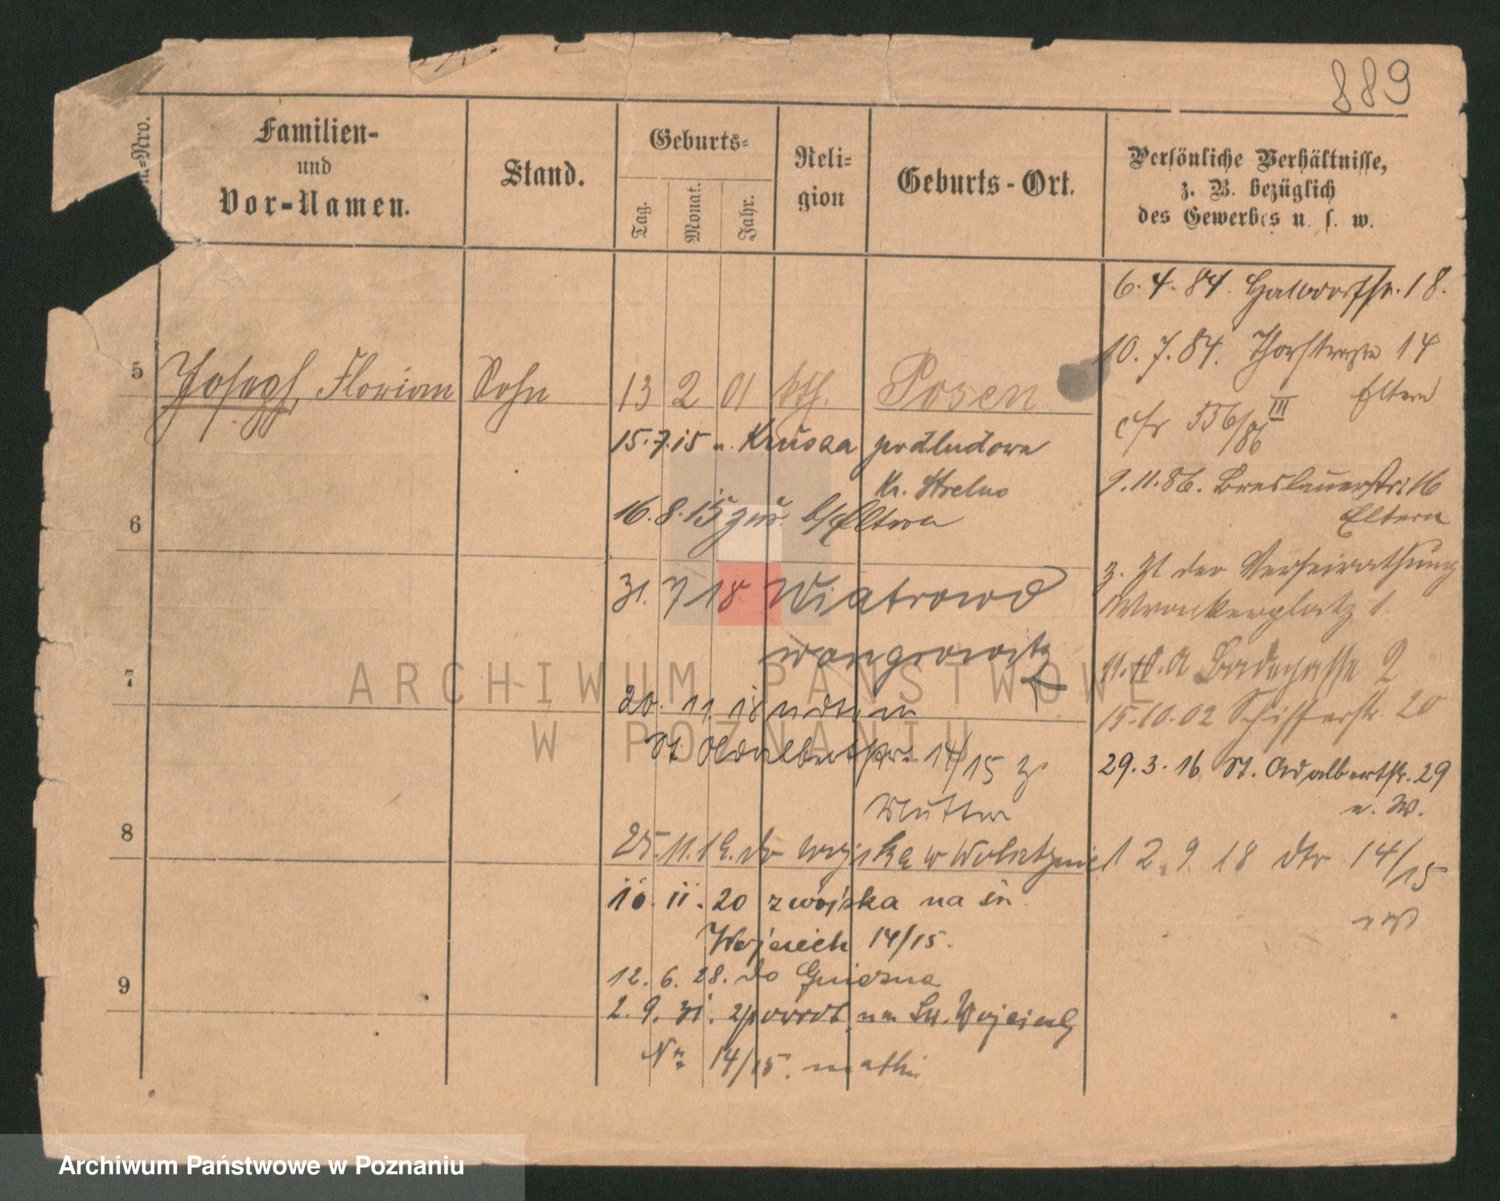 889
Familien-
und
Vor-Namen.
Stand.
Geburts-
Tag.
Monat.
Jahr.
Reli-
gion
Geburts-Ort.
Persönliche Verhältnisse,
z. B. bezüglich
des Gewerbes u. s. w.
6.4.84. Halbdorfstr. 18.
10.7.84. Thorstrasse 14
Eltern
5 Joseph, Florian Sohn 13 2 01 kth. Posen
cfr 556/86 III
15.7.15 n. Krusza podludowa
Kr. Strelno
9.11.86. Breslauerstr. 16
Eltern
6
16.8.15 zur. b/Eltern
z. Zt der Verheirathung
Wronkerplatz 1.
31. 7 18 Wiatrowo
Wongrowitz
Badegasse 2
7
20. 11. 18
15.10.02 Schifferstr. 20
St. Adalbertstr. 14/15 z
Mutter
29.3.16. St. Adalbertstr. 29
n. W.
8
25.11.19. do wojska w
1 2.9.18 dto 14/15
10. 11. 20 z wojska na św.
Wojciech 14/15.
12. 6. 28. do Gniezna
9
2. 9. 31. zpowrot na Św. Wojciech
Nr 14/15. matki
ARCHIWUM PAŃSTWOWE
W POZNANIU
Archiwum Państwowe w Poznaniu